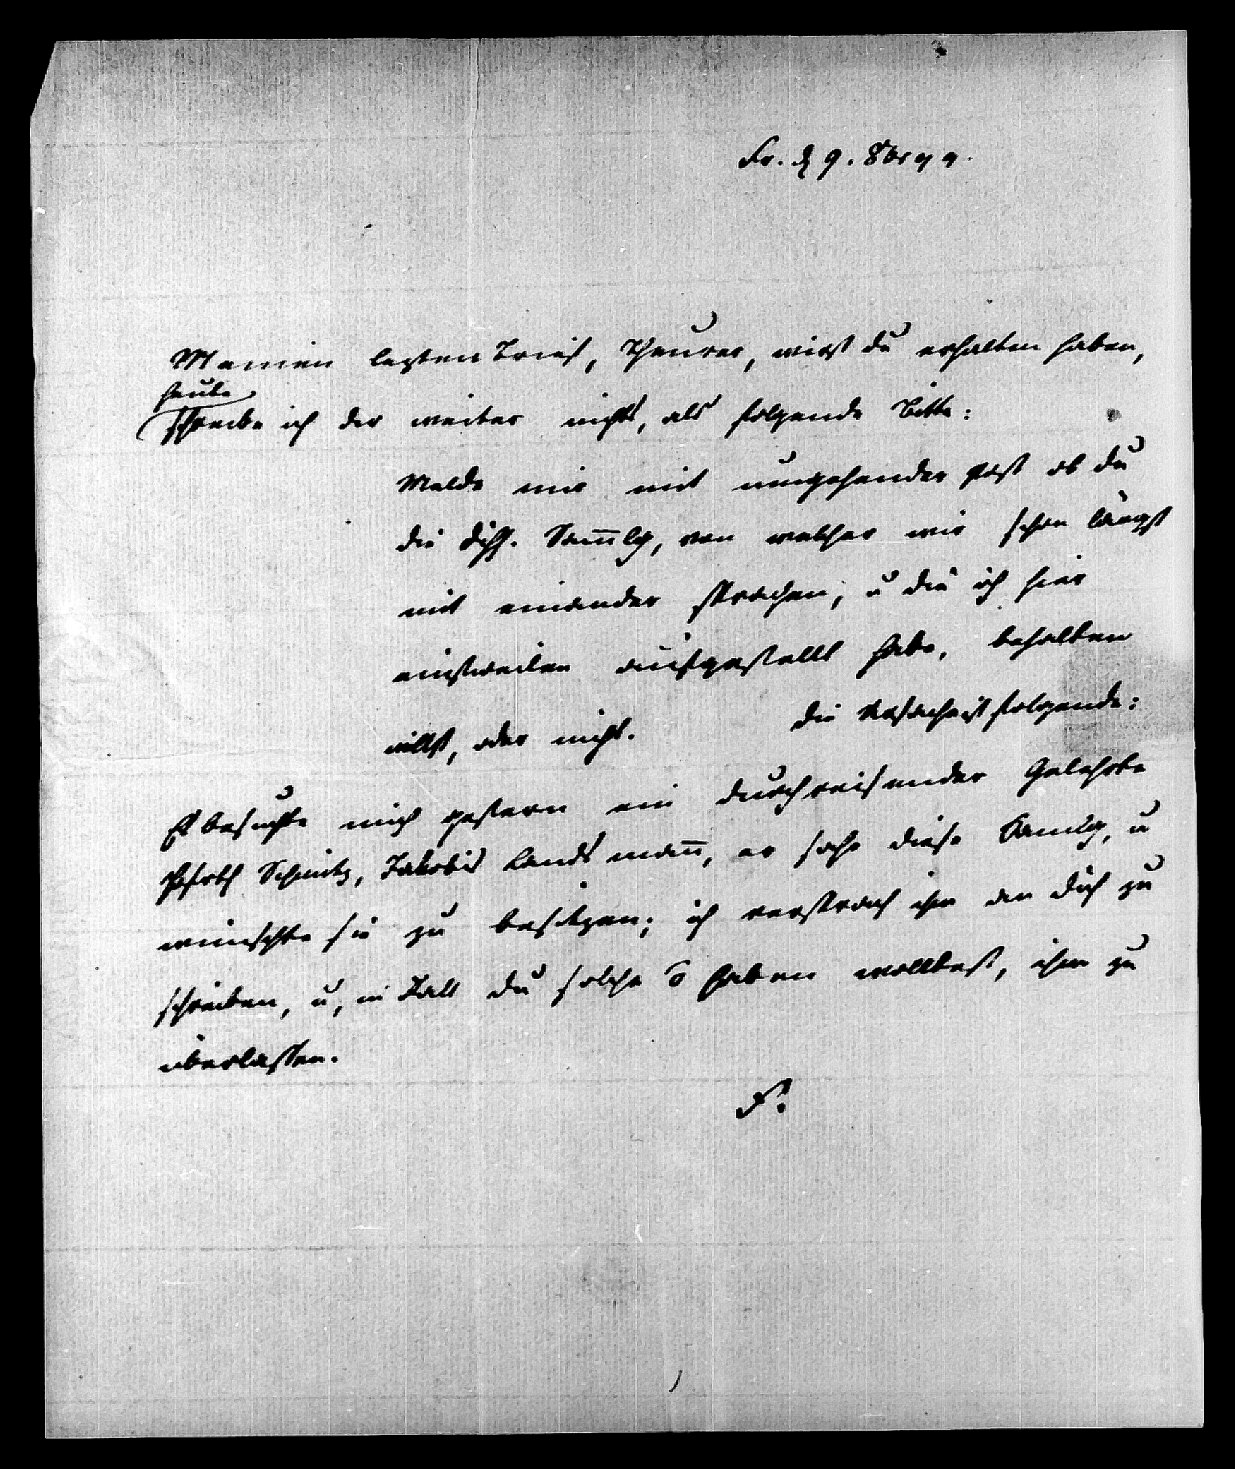 Fr. d 9. 8br 99.
Meinen lezten Brief, Theurer, wirst du erhalten haben,
heute
schreibe ich dir weiter nichts, als folgende Bitte:
Melde mir mit umgehender Post ob du
die Sammlg, von welcher wir schon längst
mit einander sprachen, u die ich hier
einstweilen aufgestellt habe, behalten
willst, oder nicht. Die Ursache ist folgende:
Es besuchte mich gestern ein durchreisender Gelehrte
Schmitz, Jakobis Landsmann, er sahe diese Samlg, u
wünschte sie zu besitzen; ich versprach ihm an dich zu
schreiben, u, im Fall du solche haben wolltest, ihm zu
überlassen.
F.